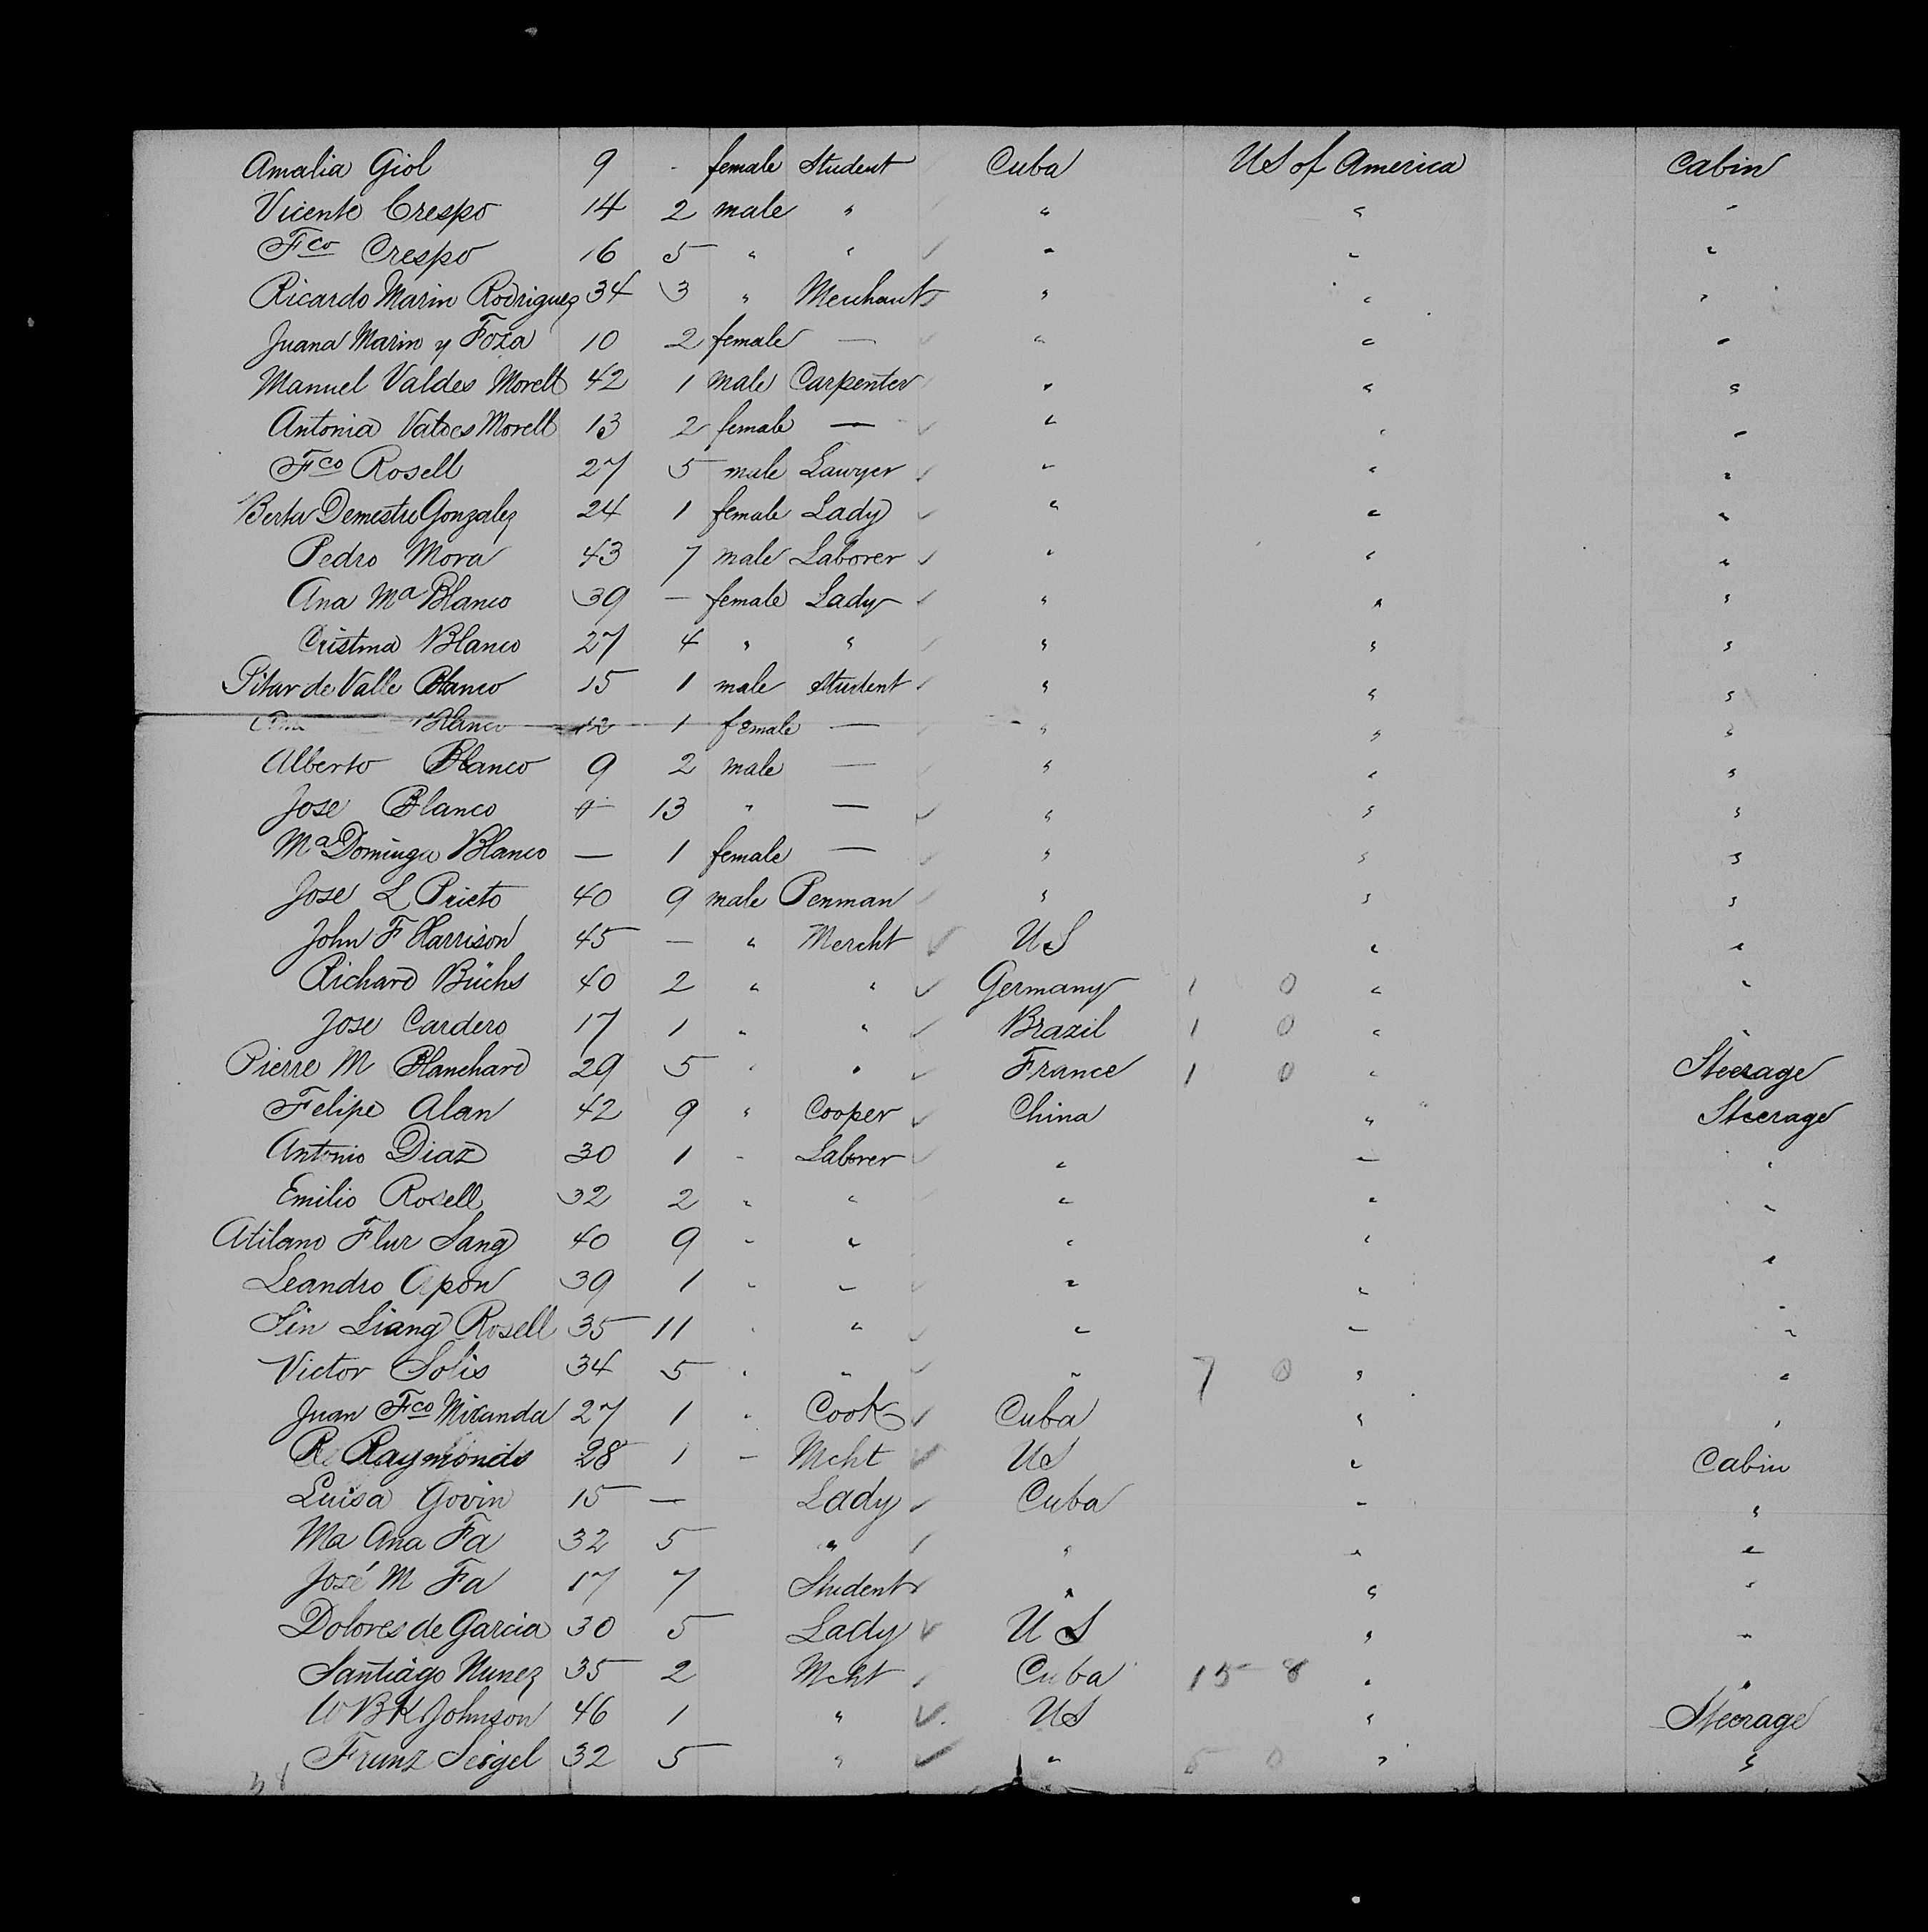 Amalia Giol 9 - female Student Cuba US of America Cabin
Vicente Crespo 14 2 male " " " "
Fco Crespo 16 5 " " " " "
Ricardo Marin Rodriguez 34 3 " Merchant " " "
Juana Marin y Foza 10 2 female — " " "
Manuel Valdes Morell 42 1 male Carpenter " " "
Antonia Valdes Morell 13 2 female — " " "
Fco Rosell 27 5 male Lawyer " " "
Berta Demestre Gonzalez 24 1 female Lady " " "
Pedro Mora 43 7 male Laborer " " "
Ana Ma Blanco 39 — female Lady " " "
Cristina Blanco 27 4 " " " " "
Pilar de Valle Blanco 15 1 male Student " " "
Blanco 12 1 female — " " "
Alberto Blanco 9 2 male — " " "
Jose Blanco 13 " — " " "
Ma Dominga Blanco — 1 female — " " "
Jose L Prieto 40 9 male Penman " " "
John F Harrison 45 — " Mercht US " "
Richard Büchs 40 2 " " Germany 1 0 " "
Jose Cardero 17 1 " " Brazil 1 0 " "
Pierre M Blanchard 29 5 " " France 1 0 " Steerage
Felipe Alan 42 9 " Cooper China " Steerage
Antonio Diaz 30 1 " Laborer " " "
Emilio Rosell 32 2 " " " " "
Atilano Flur Sang 40 9 " " " " "
Leandro Apon 39 1 " " " " "
Sin Liang Rosell 35 11 " " " " "
Victor Solis 34 5 " " " 7 0 " "
Juan Fco Miranda 27 1 " Cook Cuba " "
R Raymonds 28 1 " Mcht US " Cabin
Luisa Govin 15 — Lady Cuba " "
Ma Ana Fa 32 5 " " " "
José M Fa 17 7 Student " " "
Dolores de Garcia 30 5 Lady US " "
Santiago Nunez 35 2 Mcht Cuba 15 8 " "
W B K Johnson 46 1 " US " Steerage
Franz Seigel 32 5 " " 5 0 " "
38